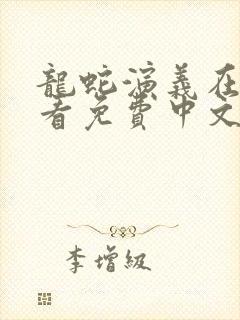 龍蛇演義在
看免費中文
李增級